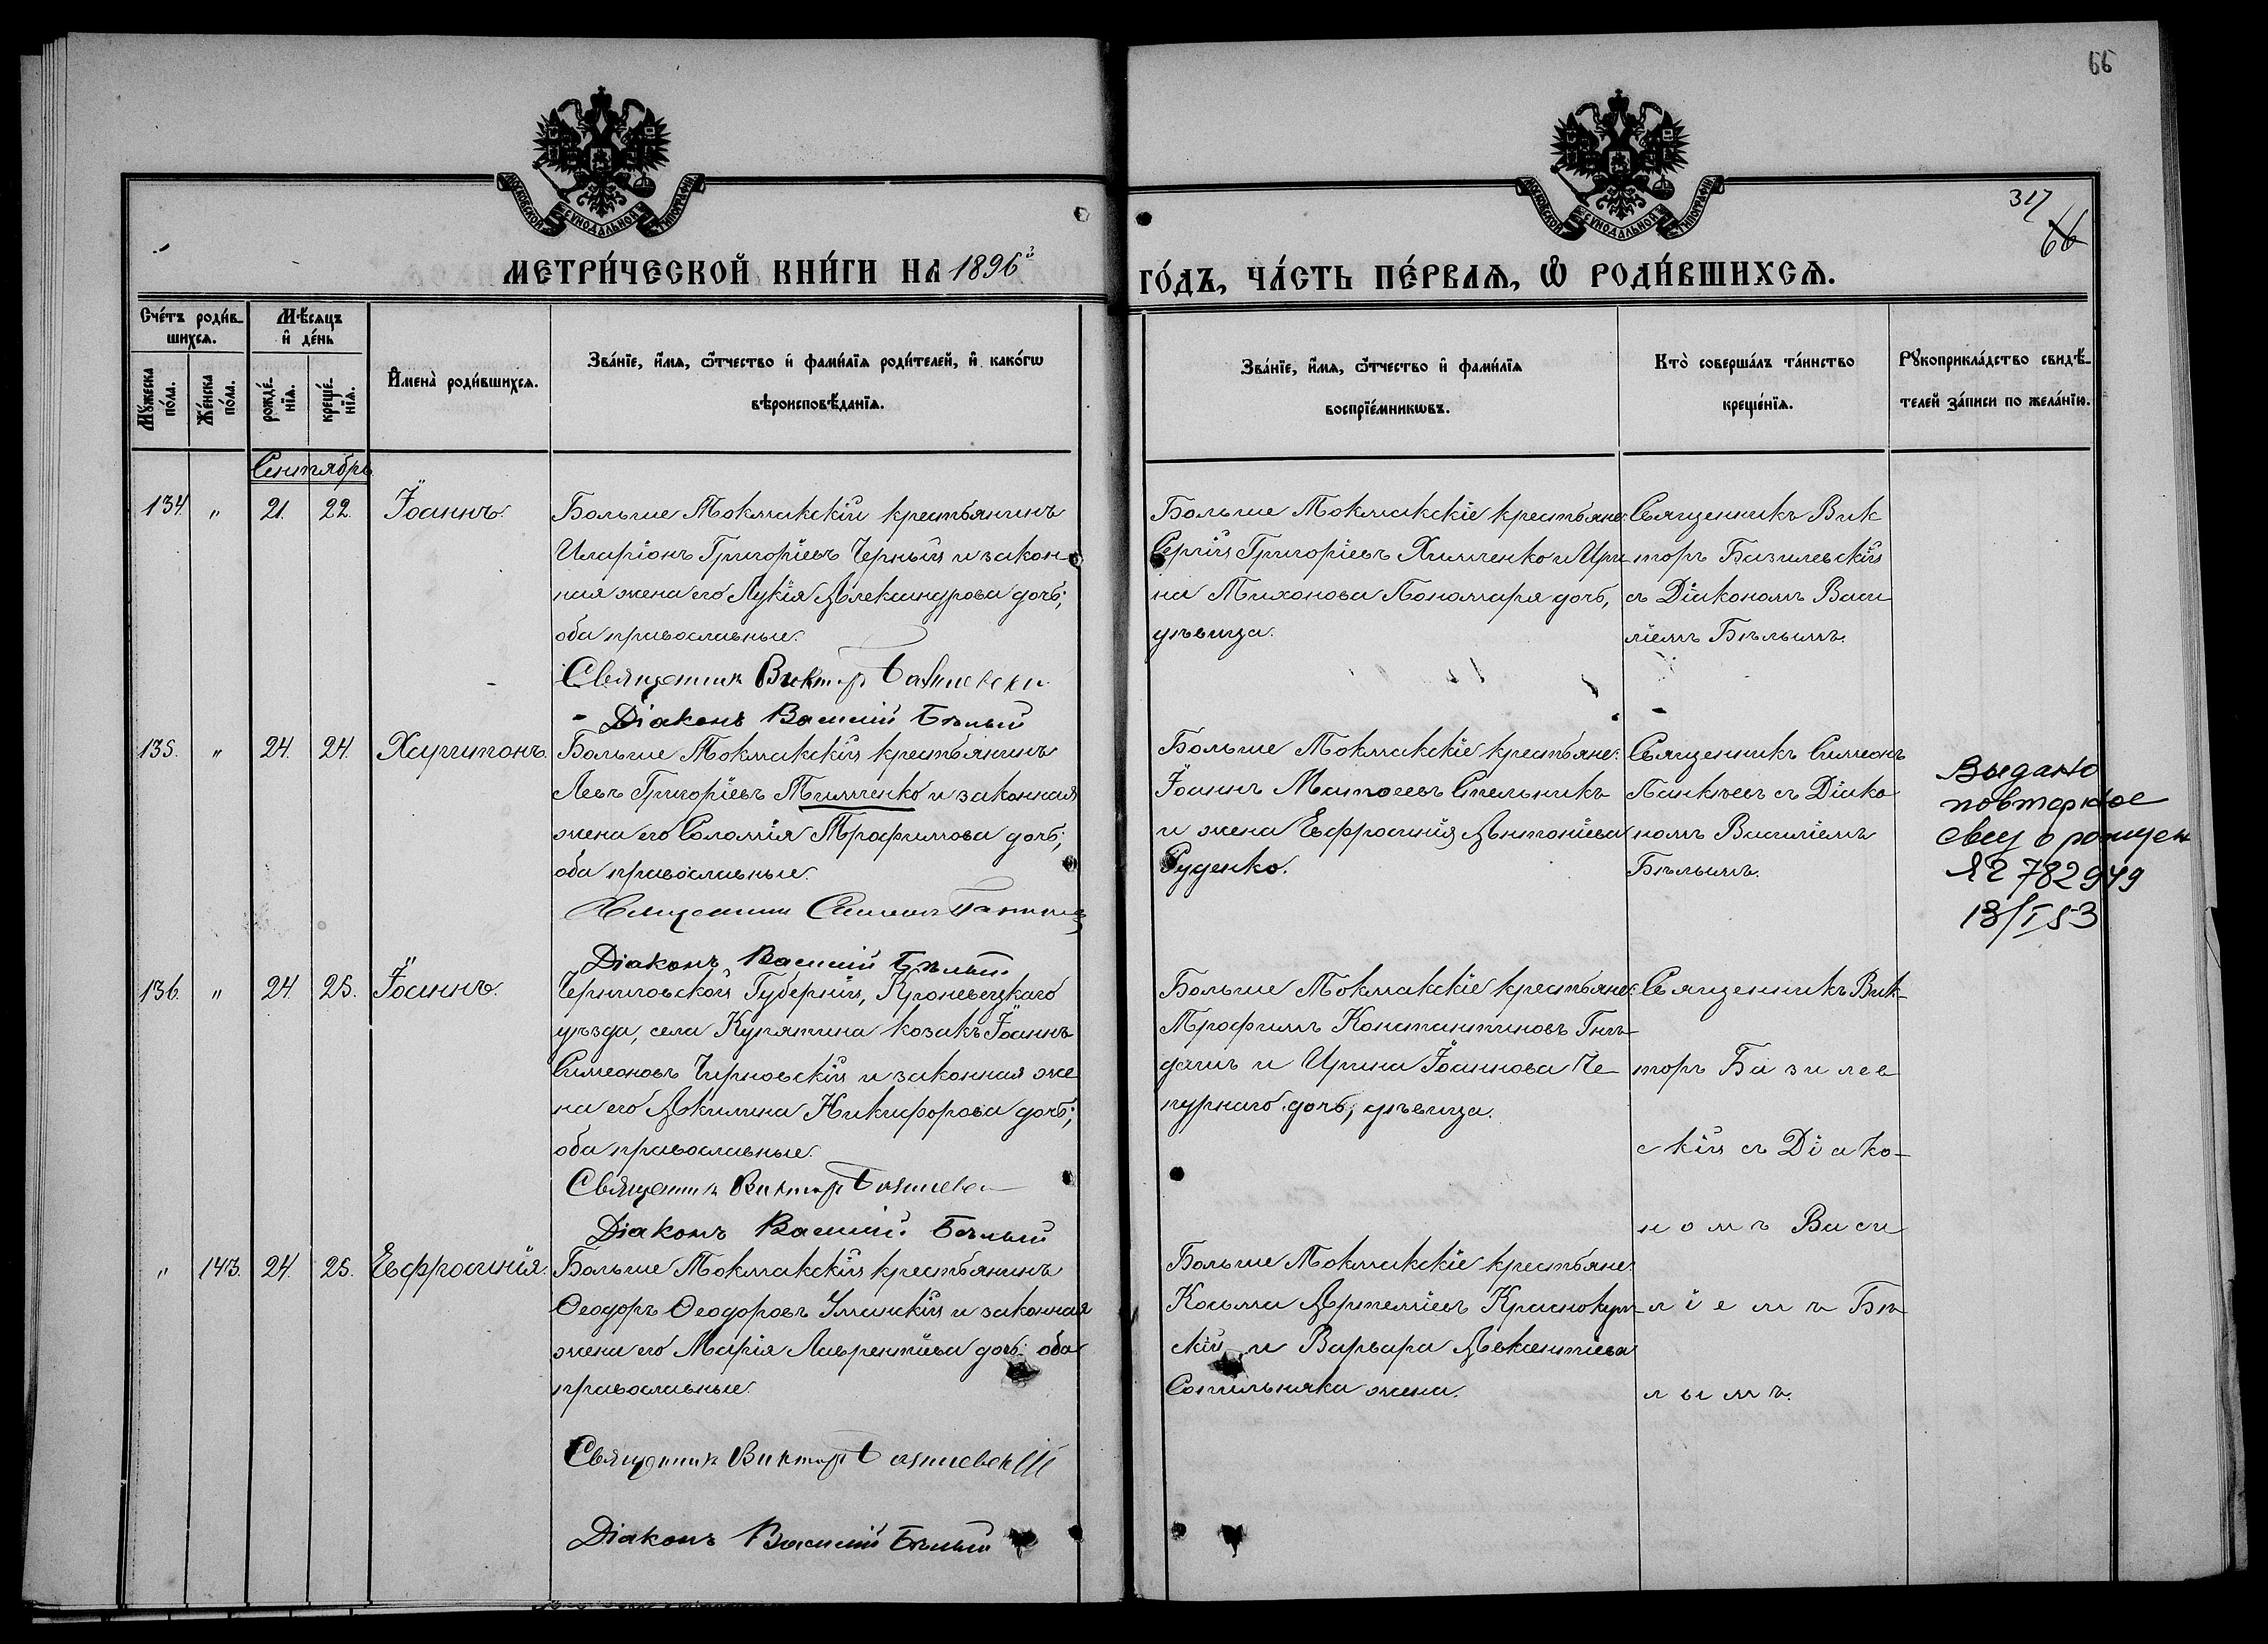 66
317
66
МОСКОВСКОЙ СѴНОДАЛЬНОЙ ТИПОГРАФІИ
МОСКОВСКОЙ СѴНОДАЛЬНОЙ ТИПОГРАФІИ
МЕТРИ́ЧЕСКОЙ КНИ́ГИ НА 1896й
ГО́ДЪ, ЧА́СТЬ ПЕ́РВАѦ, Ѽ РОДИ́ВШИХСѦ.
Сче́тъ роди́в-
шихсѧ.
Мѣ́сяцъ
и҆ де́нь
Мꙋ́жеска
по́ла.
Же́нска
по́ла.
рожде́-
нїѧ.
креще́-
нїѧ.
И҆мена̀ роди́вшихсѧ.
Зва́нїе, и҆́мѧ, ѻ҆́тчество и҆ фами́лїѧ роди́телей, и҆ како́гѡ
вѣроисповѣ́данїѧ.
Зва́нїе, и҆́мѧ, ѻ҆́тчество и҆ фами́лїѧ
воспрїе́мникѡвъ.
Кто̀ соверша́лъ та́инство
креще́нїѧ.
Рꙋкоприкла́дство свидѣ́-
телей за́писи по жела́нїю.
Сентябрь
134. " 21. 22. Іоаннъ.
Больше Токмакскій крестьянинъ
Иларіонъ Григоріевъ Черный и закон-
ная жена его Лукія Александрова дочь;
оба православные.
Священник Виктор Базилевски
Діаконъ Василій Бѣлый
Больше Токмакскіе крестьяне:
Сергій Григоріевъ Химченко и Ири
на Тихонова Пономаря дочь,
дѣвица.
Священникъ Вик
торъ Базилевскій
съ Діакономъ Васи
ліемъ Бѣлымъ.
135. " 24. 24. Харитонъ.
Больше Токмакскій крестьянинъ
Левъ Григоріевъ Тимченко и законная
жена его Соломія Трофимова дочь;
оба православные.
Священник Симеонъ
Діаконъ Василій Бѣлый
Больше Токмакскіе крестьяне:
Іоаннъ Матѳеевъ Стельникъ
и жена Евфросинія Антоніева
Руденко.
Священникъ Симеонъ
Панкѣевъ съ Діако
номъ Василіемъ
Бѣлымъ.
Выдано
повторное
свид о рожден
ЯГ 782949
13/I 53
136. " 24. 25. Іоаннъ.
Черниговской Губерніи, Кроневецкаго
уѣзда, села Курятина козакъ Іоаннъ
Симеоновъ Чирновскій и законная же
на его Акилина Никифорова дочь;
оба православные.
Священник Виктор Базилевс
Діаконъ Василій Бѣлый
Больше Токмакскіе крестьяне:
Трофимъ Константиновъ Гнѣ-
дашъ и Ирина Іоаннова Че-
пурнаго дочь, дѣвица.
Священникъ Вик-
торъ Базилев
скій съ Діако-
номъ Васи
ліемъ Бѣ-
лымъ.
" 143. 24. 25. Евфросинія.
Больше Токмакскій крестьянинъ
Ѳеодоръ Ѳеодоровъ Уманскій и законная
жена его Марія Лаврентіева дочь: оба
православные.
Священник Виктор Базилевскій
Діаконъ Василій Бѣлый
Больше Токмакскіе крестьяне
Косьма Артеміевъ Краснокут-
скій и Варвара Авксентіева
Сопильняка жена.